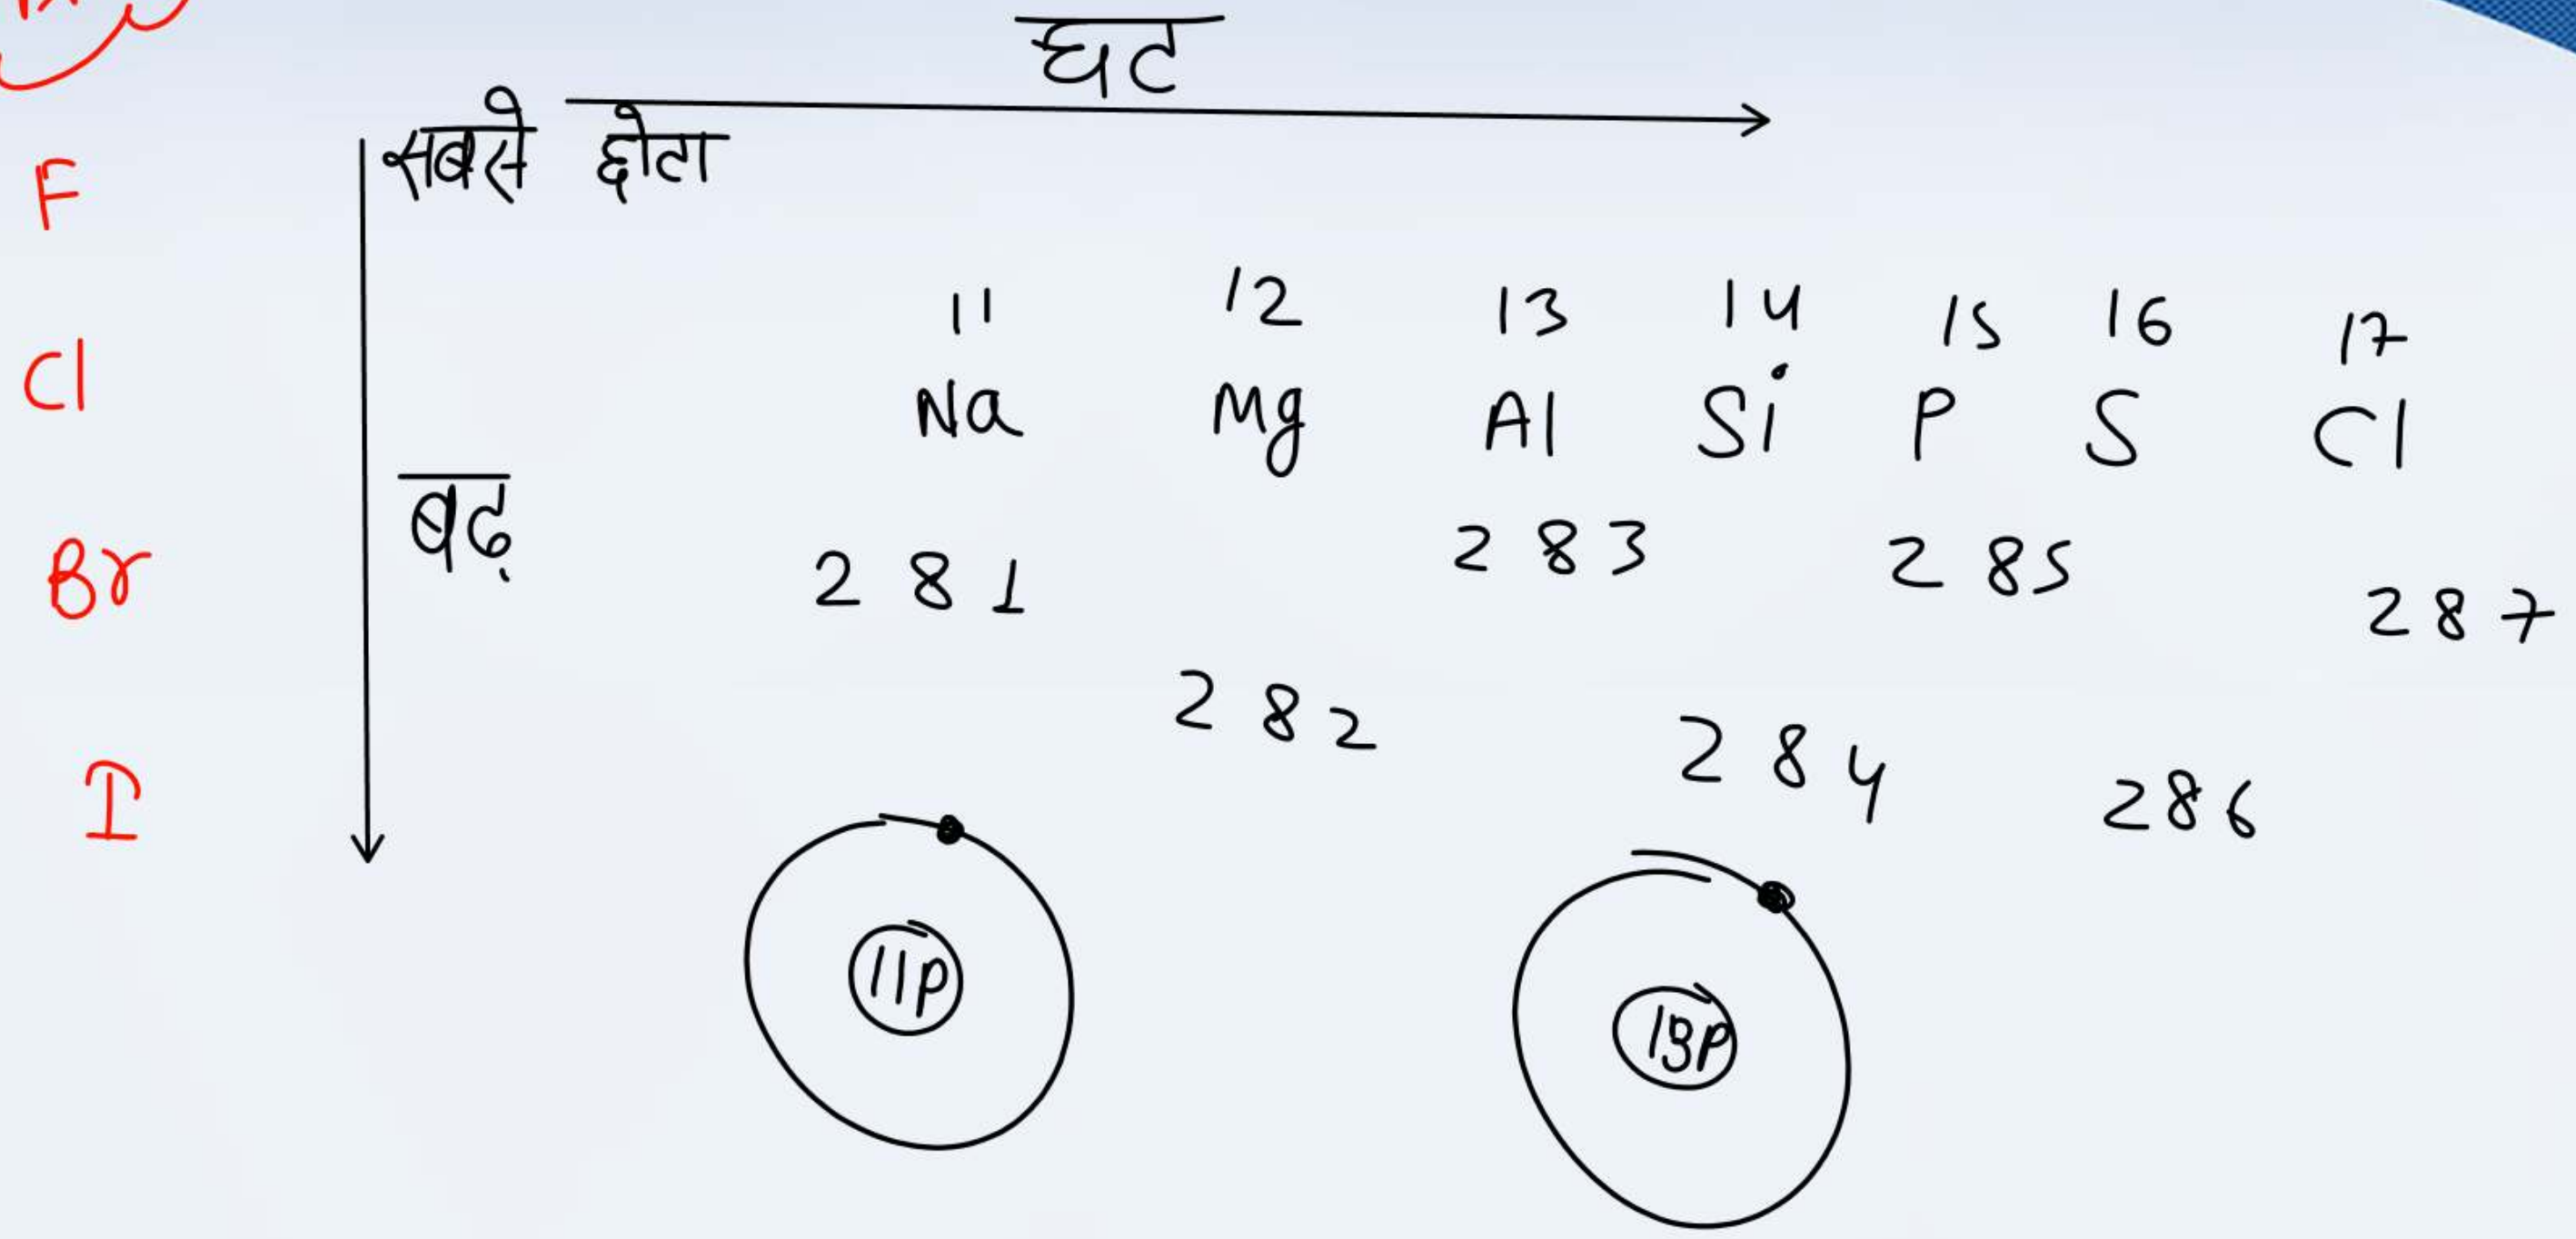 घट
सबसे छोटा
F
11 12 13 14 15 16 17
Cl Na Mg Al Si P S Cl
बढ़
Br 2 8 1 2 8 3 2 8 5 2 8 7
2 8 2 2 8 4 2 8 6
I
11p 13p